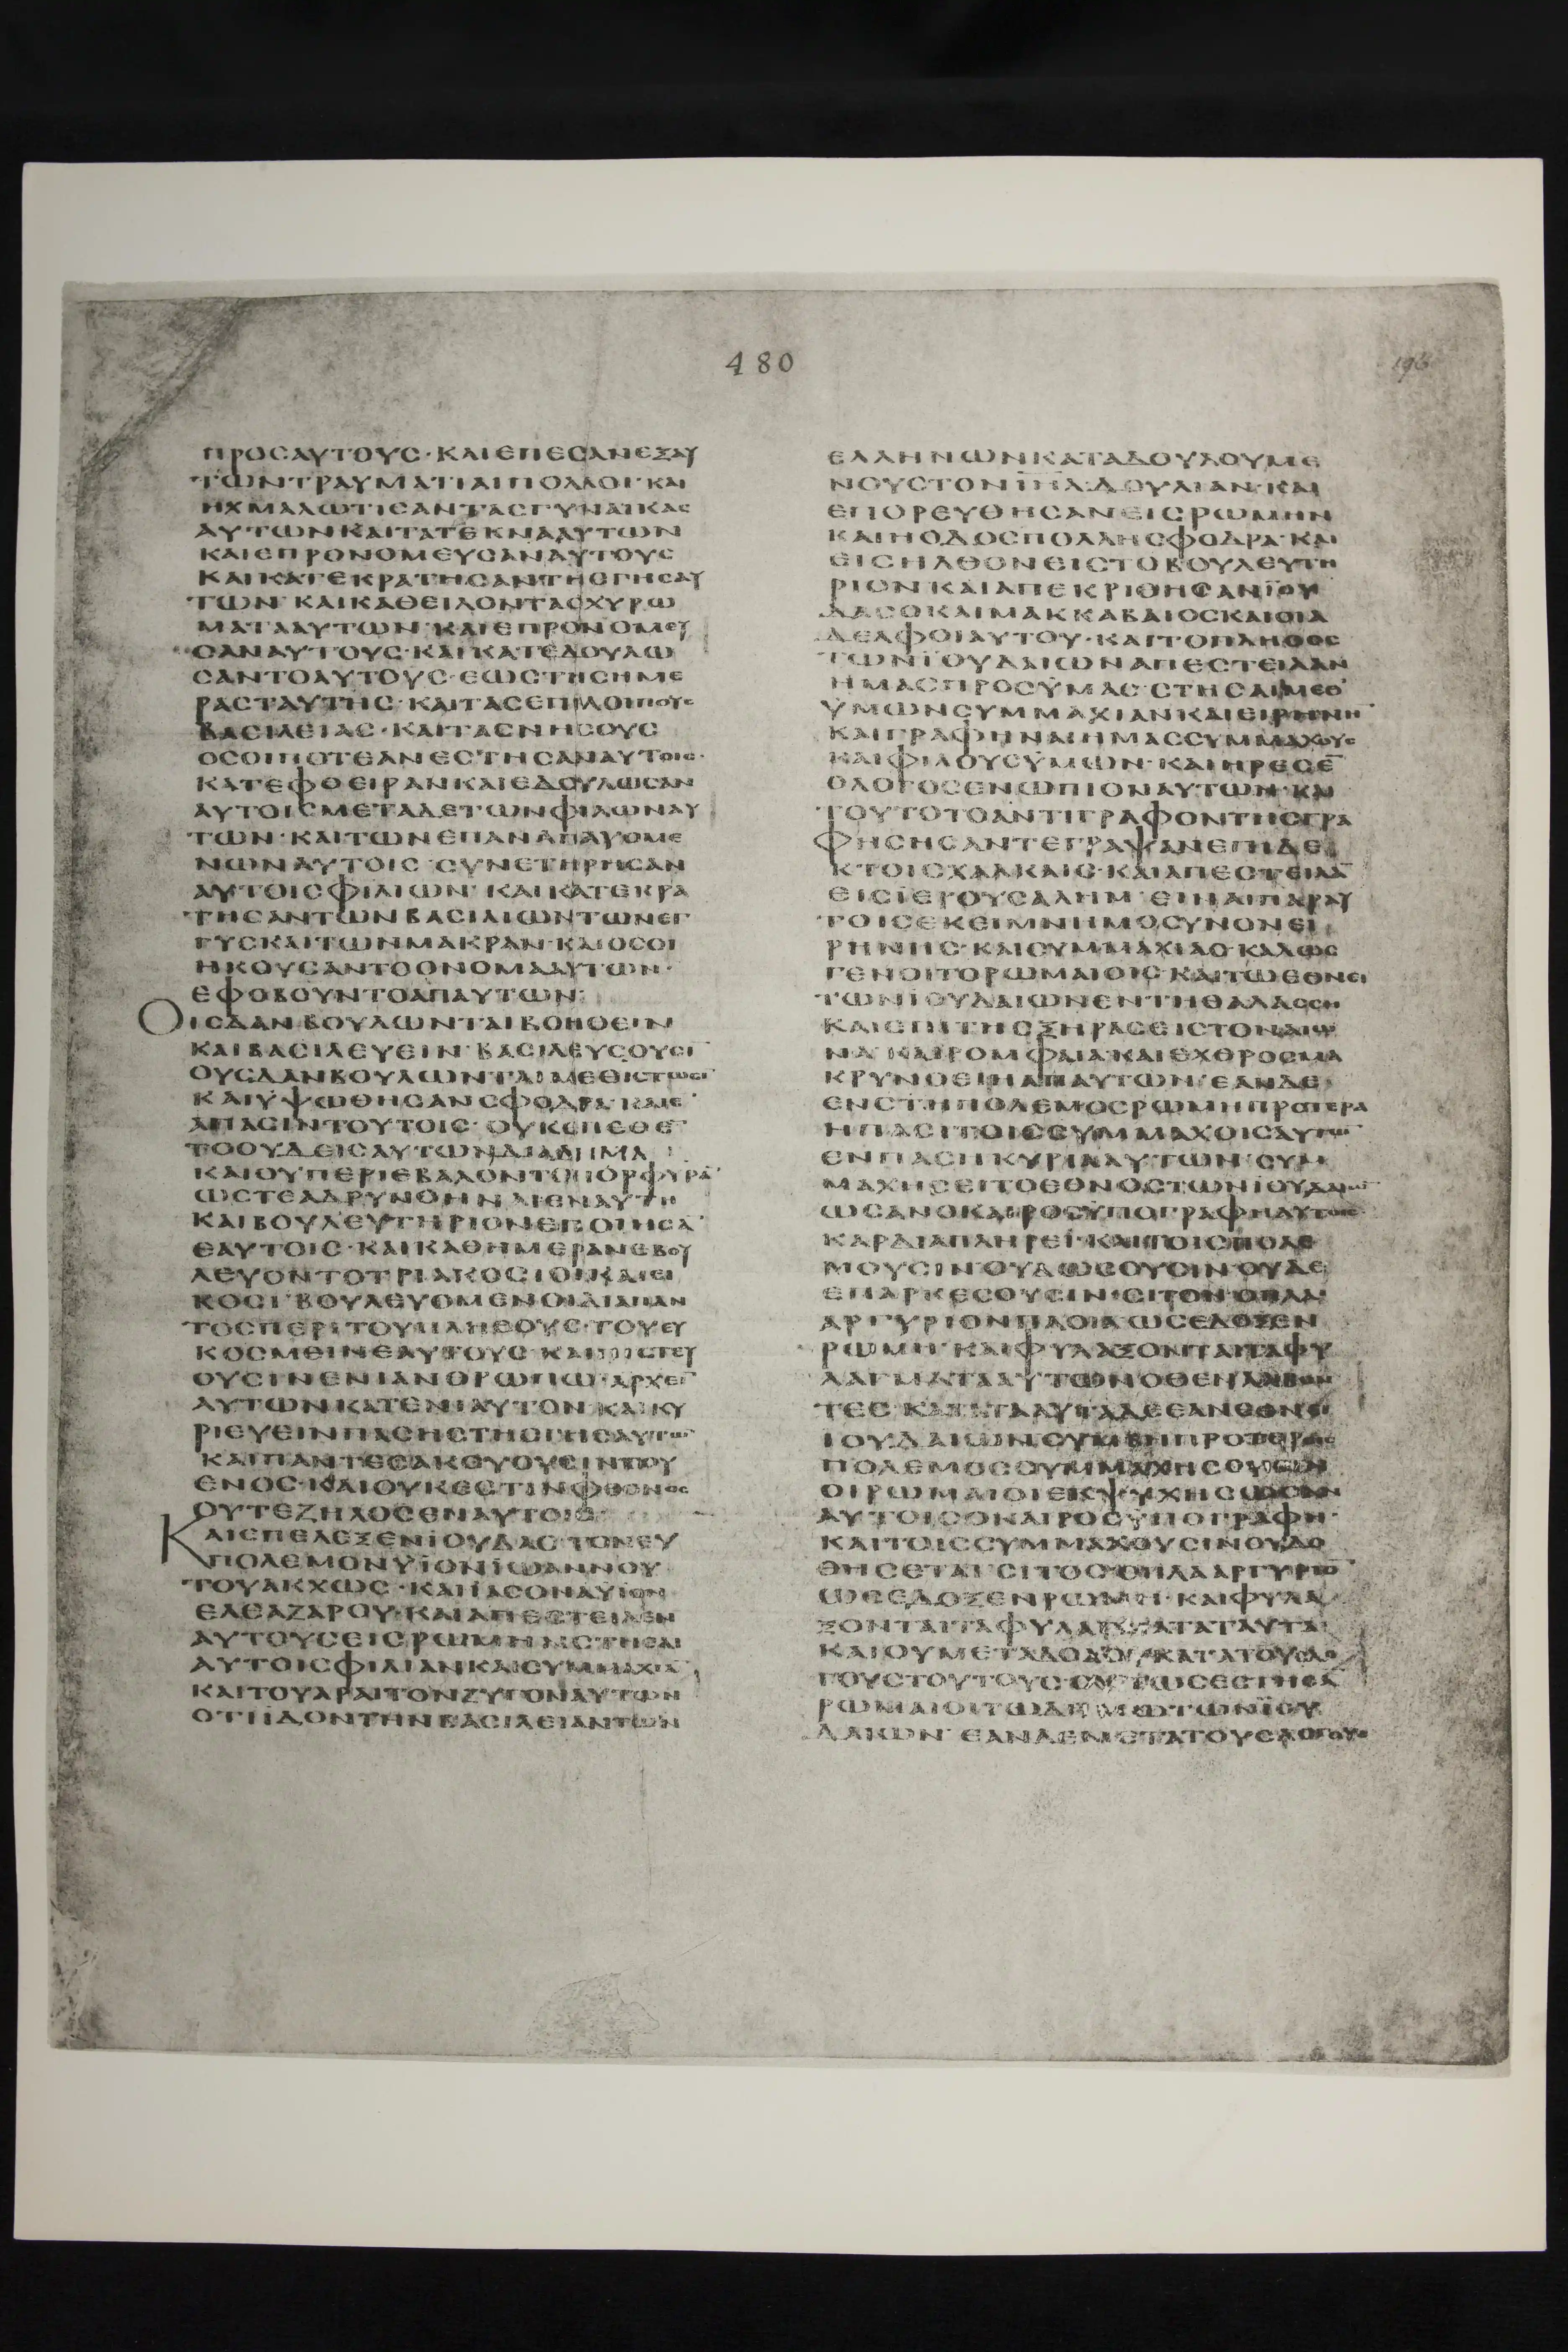 480
196
ΠΡΟСΑΥΤΟΥС·ΚΑΙΕΠΕСΑΝΕΞΑΥ
ΤΩΝΤΡΑΥΜΑΤΙΑΙΠΟΛΛΟΙ·ΚΑΙ
ΗΧΜΑΛΩΤΙСΑΝΤΑСΓΥΝΑΙΚΑС
ΑΥΤΩΝΚΑΙΤΑΤΕΚΝΑΑΥΤΩΝ
ΚΑΙΕΠΡΟΝΟΜΕΥСΑΝΑΥΤΟΥС
ΚΑΙΚΑΤΕΚΡΑΤΗСΑΝΤΗСΓΗСΑΥ
ΤΩΝ·ΚΑΙΚΑΘΕΙΛΟΝΤΑΟΧΥΡΩ
ΜΑΤΑΑΥΤΩΝ·ΚΑΙΕΠΡΟΝΟΜΕΥ
СΑΝΑΥΤΟΥС·ΚΑΙΚΑΤΕΔΟΥΛΩ
СΑΝΤΟΑΥΤΟΥС·ΕΩСΤΗСΗΜΕ
ΡΑСΤΑΥΤΗС·ΚΑΙΤΑСΕΠΙΛΟΙΠΟΥС
ΒΑСΙΛΕΙΑС·ΚΑΙΤΑСΝΗСΟΥС
ΟСΟΙΠΟΤΕΑΝΕСΤΗСΑΝΑΥΤΟΙС·
ΚΑΤΕΦΘΕΙΡΑΝΚΑΙΕΔΟΥΛΩСΑΝ
ΑΥΤΟΙСΜΕΤΑΔΕΤΩΝΦΙΛΩΝΑΥ
ΤΩΝ·ΚΑΙΤΩΝΕΠΑΝΑΠΑΥΟΜΕ
ΝΩΝΑΥΤΟΙС·СΥΝΕΤΗΡΗСΑΝ
ΑΥΤΟΙСΦΙΛΙΩΝ·ΚΑΙΚΑΤΕΚΡΑ
ΤΗСΑΝΤΩΝΒΑСΙΛΙΩΝΤΩΝΕΓ
ΓΥСΚΑΙΤΩΝΜΑΚΡΑΝ·ΚΑΙΟСΟΙ
ΗΚΟΥСΑΝΤΟΟΝΟΜΑΑΥΤΩΝ·
ΕΦΟΒΟΥΝΤΟΑΠΑΥΤΩΝ·
ΟΙСΔΑΝΒΟΥΛΩΝΤΑΙΒΟΗΘΕΙΝ
ΚΑΙΒΑСΙΛΕΥΕΙΝ·ΒΑСΙΛΕΥСΟΥСΙ
ΟΥСΔΑΝΒΟΥΛΩΝΤΑΙΜΕΘΙСΤΩСΙ
ΚΑΙΫΨΩΘΗСΑΝСΦΟΔΡΑ·ΚΑΙΕ̅
ΑΠΑСΙΝΤΟΥΤΟΙС·ΟΥΚΕΠΕΘΕ̅
ΤΟΟΥΔΕΙСΑΥΤΩΝΔΙΑΔΗΜΑ
ΚΑΙΟΥΠΕΡΙΕΒΑΛΟΝΤΟΠΟΡΦΥΡΑ̅
ΩСΤΕΑΔΡΥΝΘΗΝΑΙΕΝΑΥΤΗ
ΚΑΙΒΟΥΛΕΥΤΗΡΙΟΝΕΠΟΙΗСΑ̅
ΕΑΥΤΟΙС·ΚΑΙΚΑΘΗΜΕΡΑΝΕΒΟΥ
ΛΕΥΟΝΤΟΤΡΙΑΚΟСΙΟΙΚΑΙΕΙ
ΚΟСΙ·ΒΟΥΛΕΥΟΜΕΝΟΙΔΙΑΠΑΝ
ΤΟСΠΕΡΙΤΟΥΠΛΗΘΟΥС·ΤΟΥΕΥ
ΚΟСΜΘΙΝΕΑΥΤΟΥС·ΚΑΙΠΙСΤΕΥ
ΟΥСΙΝΕΝΙΑΝΘΡΩΠΩ·ΑΡΧΕΙ̅
ΑΥΤΩΝΚΑΤΕΝΙΑΥΤΟΝ·ΚΑΙΚΥ
ΡΙΕΥΕΙΝΠΑСΗСΤΗСΓΗСΑΥΤΩ̅
ΚΑΙΠΑΝΤΕСΑΚΟΥΟΥСΙΝΤΟΥ
ΕΝΟС·ΚΑΙΟΥΚΕСΤΙΝΦΘΟΝΟС
ΟΥΤΕΖΗΛΟСΕΝΑΥΤΟΙС
ΚΑΙΕΠΕΛΕΞΕΝΪΟΥΔΑСΤΟΝΕΥ
ΠΟΛΕΜΟΝΥΪΟΝΪΩΑΝΝΟΥ
ΤΟΥΑΚΧΩС·ΚΑΙΪΑСΟΝΑΥΪΟΝ
ΕΛΕΑΖΑΡΟΥ·ΚΑΙΑΠΕСΤΕΙΛΕΝ
ΑΥΤΟΥСΕΙСΡΩΜΗΝСΤΗСΑΙ
ΑΥΤΟΙСΦΙΛΙΑΝΚΑΙСΥΜΜΑΧΙΑ̅
ΚΑΙΤΟΥΑΡΑΙΤΟΝΖΥΓΟΝΑΥΤΩΝ
ΟΤΙΙΔΟΝΤΗΝΒΑСΙΛΕΙΑΝΤΩΝ
ΕΛΛΗΝΩΝΚΑΤΑΔΟΥΛΟΥΜΕ
ΝΟΥСΤΟΝΙΗΛΔΟΥΛΙΑΝ·ΚΑΙ
ΕΠΟΡΕΥΘΗСΑΝΕΙСΡΩΜΗΝ
ΚΑΙΗΟΔΟСΠΟΛΛΗСΦΟΔΡΑ·ΚΑΙ
ΕΙСΗΛΘΟΝΕΙСΤΟΒΟΥΛΕΥΤΗ
ΡΙΟΝΚΑΙΑΠΕΚΡΙΘΗСΑΝΪΟΥ
ΔΑСΟΚΑΙΜΑΚΚΑΒΑΙΟСΚΑΙΟΙΑ
ΔΕΛΦΟΙΑΥΤΟΥ·ΚΑΙΤΟΠΛΗΘΟС
ΤΩΝΪΟΥΔΑΙΩΝΑΠΕСΤΕΙΛΑΝ
ΗΜΑСΠΡΟСΫΜΑС·СΤΗСΑΙΜΕΘ
ΫΜΩΝСΥΜΜΑΧΙΑΝΚΑΙΕΙΡΗΝΗ̅
ΚΑΙΓΡΑΦΗΝΑΙΗΜΑССΥΜΜΑΧΟΥС
ΚΑΙΦΙΛΟΥСΫΜΩΝ·ΚΑΙΗΡΕСΕ̅
ΟΛΟΓΟСΕΝΩΠΙΟΝΑΥΤΩΝ·ΚΑΙ
ΤΟΥΤΟΤΟΑΝΤΙΓΡΑΦΟΝΤΗСΓΡΑ
ΦΗСΗСΑΝΤΕΓΡΑΨΑΝΕΠΙΔΕ
ΚΤΟΙСΧΑΛΚΑΙС·ΚΑΙΑΠΕСΤΕΙΛΑ̅
ΕΙСΪΕΡΟΥСΑΛΗΜ·ΕΙΗΑΙΠΑΡΑΥ
ΤΟΙСΕΚΕΙΜΝΗΜΟСΥΝΟΝΕΙ
ΡΗΝΗС·ΚΑΙСΥΜΜΑΧΙΑС·ΚΑΛΩС
ΓΕΝΟΙΤΟΡΩΜΑΙΟΙС·ΚΑΙΤΩΕΘΝΕΙ
ΤΩΝΪΟΥΔΑΙΩΝΕΝΤΗΘΑΛΑССΗ
ΚΑΙΕΠΙΤΗСΞΗΡΑСΕΙСΤΟΝΑΙΩ
ΝΑ·ΚΑΙΡΟΜΦΑΙΑΚΑΙΕΧΘΡΟСΜΑ
ΚΡΥΝΘΕΙΗΑΠΑΥΤΩΝ·ΕΑΝΔΕ
ΕΝСΤΗΠΟΛΕΜΟСΡΩΜΗΠΡΟΤΕΡΑ
ΗΠΑСΙΤΟΙССΥΜΜΑΧΟΙСΑΥΤΩ̅
ΕΝΠΑСΗΚΥΡΙΑΑΥΤΩΝ·СΥΜ
ΜΑΧΗСΕΙΤΟΕΘΝΟСΤΩΝΙΟΥΔΑΙΩ̅
ΩСΑΝΟΚΑΙΡΟСΫΠΟΓΡΑΦΗΑΥΤΟΙС
ΚΑΡΔΙΑΠΛΗΡΕΙ·ΚΑΙΤΟΙСΠΟΛΕ
ΜΟΥСΙΝΟΥΔΩСΟΥСΙΝΟΥΔΕ
ΕΠΑΡΚΕСΟΥСΙΝ·СΙΤΟΝΟΠΛΑ
ΑΡΓΥΡΙΟΝΠΛΟΙΑΩСΕΔΟΞΕΝ
ΡΩΜΗ·ΚΑΙΦΥΛΑΞΟΝΤΑΙΤΑΦΥ
ΛΑΓΜΑΤΑΑΥΤΩΝΟΘΕΝΛΑΒΟΝ
ΤΕС·ΚΑΤΑΤΑΑΥΤΑΔΕΕΑΝΕΘΝΕΙ
ΙΟΥΔΑΙΩΝСΥΜΒΗΠΡΟΤΕΡΟΙС
ΠΟΛΕΜΟССΥΜΜΑΧΗСΟΥСΙΝ
ΟΙΡΩΜΑΙΟΙΕΚΨΥΧΗСΩСΑΝ
ΑΥΤΟΙСΟΚΑΙΡΟСΫΠΟΓΡΑΦΗ·
ΚΑΙΤΟΙССΥΜΜΑΧΟΥСΙΝΟΥΔΟ
ΘΗСΕΤΑΙ·СΙΤΟСΟΠΛΑΑΡΓΥΡΙΟ̅
ΩСΕΔΟΞΕΝΡΩΜΗ·ΚΑΙΦΥΛΑ
ΞΟΝΤΑΙΤΑΦΥΛΑΓΜΑΤΑΤΑΥΤΑ
ΚΑΙΟΥΜΕΤΑΔΟΛΟΥ·ΚΑΤΑΤΟΥСΛΟ
ΓΟΥСΤΟΥΤΟΥС·ΟΥΤΩСΕСΤΗСΑ̅
ΡΩΜΑΙΟΙΤΩΔΗΜΩΤΩΝΪΟΥ
ΔΑΙΩΝ·ΕΑΝΔΕΜΕΤΑΤΟΥСΛΟΓΟΥС